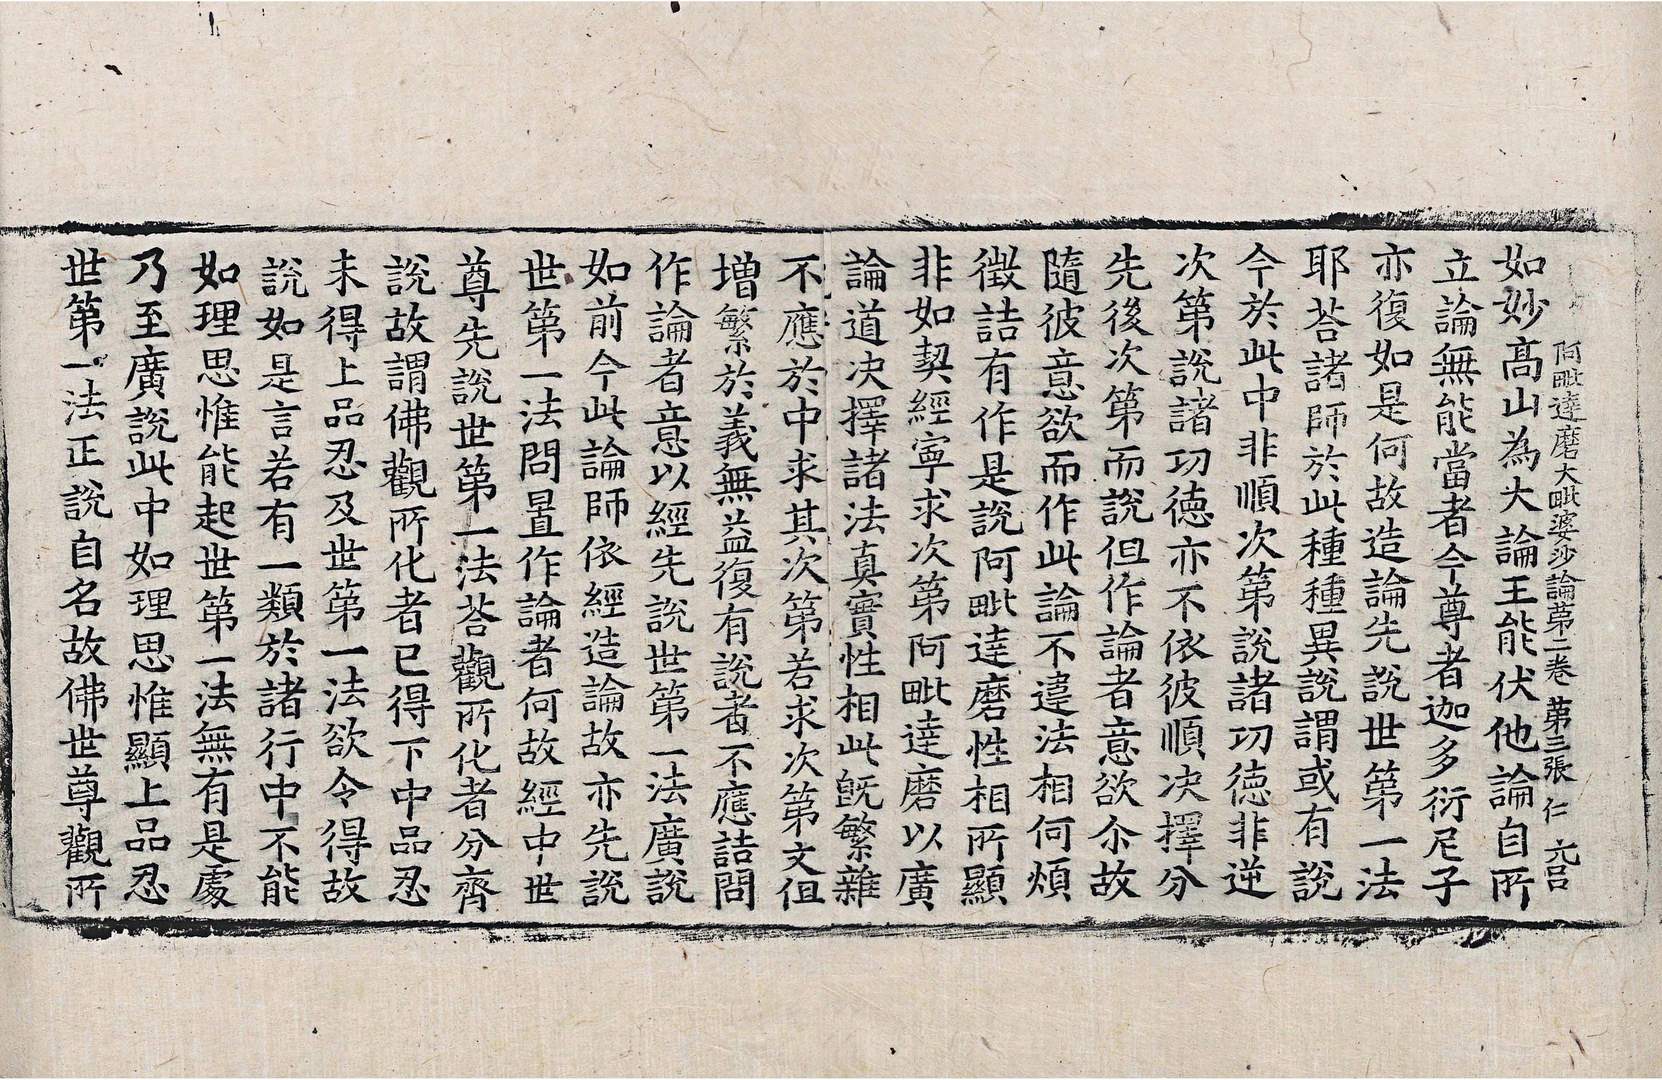 阿毗達磨大毗婆沙論第二卷 第三張 仁 元吕
如妙高山為大論王能伏他論自所
立論無能當者今尊者迦多衍尼子
亦復如是何故造論先說世第一法
耶荅諸師於此種種異說謂或有說
今於此中非順次第說諸功德非逆
次第說諸功德亦不依彼順決擇分
先後次第而說但作論者意欲尒故
隨彼意欲而作此論不違法相何煩
徵詰有作是說阿毗達磨性相所顯
非如契經寧求次第阿毗達磨以廣
論道决擇諸法真實性相此旣繁雜
不應於中求其次第若求次第文但
増繁於義無益復有說者不應詰問
作論者意以經先說世第一法廣說
如前今此論師依經造論故亦先說
世第一法問置作論者何故經中世
尊先說世第一法荅觀所化者分齊
說故謂佛觀所化者已得下中品忍
未得上品忍及世第一法欲令得故
說如是言若有一類於諸行中不能
如理思惟能起世第一法無有是處
乃至廣說此中如理思惟顯上品忍
世第一法正說自名故佛世尊觀所